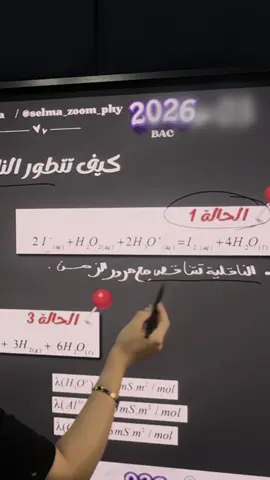 / @selma_zoom_phy
2026
BAC
كيف تتطور النا
الحالة 1
2I⁻(aq) + H₂O₂(aq) + 2H₃O⁺(aq) = I₂(aq) + 4H₂O(l)
الناقلية تتناقص مع مرور الزمن.
الحالة 3
+ 3H₂(g) + 6H₂O(l)
λ(H₃O⁺)
mS.m² / mol
λ(Al
mS.m² / mol
λ(
mS.m² / mol